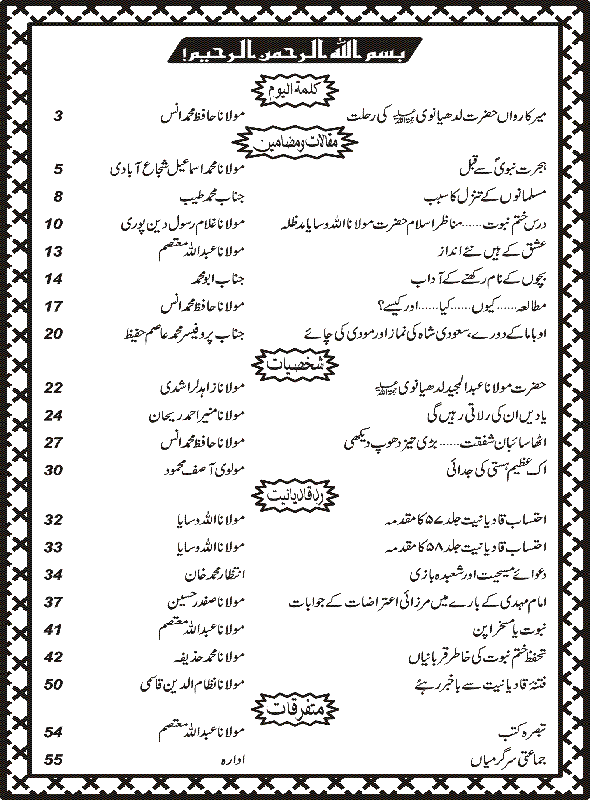 بسم اللہ الرحمن الرحیم!
کلمۃ الیوم
میر کارواں حضرت لدھیانوی رحمۃ اللہ علیہ کی رحلت مولانا حافظ محمد انس 3
مقالات ومضامین
ہجرت نبویؐ سے قبل مولانا محمد اسماعیل شجاع آبادی 5
مسلمانوں کے تنزل کا سبب جناب محمد طیب 8
درس ختم نبوت......مناظر اسلام حضرت مولانا اللہ وسایا مدظلہ مولانا غلام رسول دین پوری 10
عشق کے ہیں نئے انداز مولانا عبداللہ معتصم 13
بچوں کے نام رکھنے کے آداب جناب ابو محمد 14
مطالعہ......کیوں......کیا......اور کیسے؟ مولانا حافظ محمد انس 17
اوباما کے دورے، سعودی شاہ کی نماز اور مودی کی چائے جناب پروفیسر محمد عاصم حفیظ 20
شخصیات
حضرت مولانا عبدالمجید لدھیانوی رحمۃ اللہ علیہ مولانا زاہد الراشدی 22
یادیں ان کی رلاتی رہیں گی مولانا منیر احمد ریحان 24
اٹھا سائبان شفقت......بڑی تیز دھوپ دیکھی مولانا حافظ محمد انس 27
اک عظیم ہستی کی جدائی مولوی آصف محمود 30
رد قادیانیت
احتساب قادیانیت جلد ۵۷ کا مقدمہ مولانا اللہ وسایا 32
احتساب قادیانیت جلد ۵۸ کا مقدمہ مولانا اللہ وسایا 33
دعوائے مسیحیت اور شعبدہ بازی انتظار محمد خان 34
امام مہدی کے بارے میں مرزائی اعتراضات کے جوابات مولانا صفدر حسین 37
نبوت یا مسخراپن مولانا عبداللہ معتصم 41
تحفظ ختم نبوت کی خاطر قربانیاں مولانا محمد حذیفہ 42
فتنۂ قادیانیت سے باخبر رہئے مولانا نظام الدین قاسمی 50
متفرقات
تبصرہ کتب مولانا عبداللہ معتصم 54
جماعتی سرگرمیاں ادارہ 55